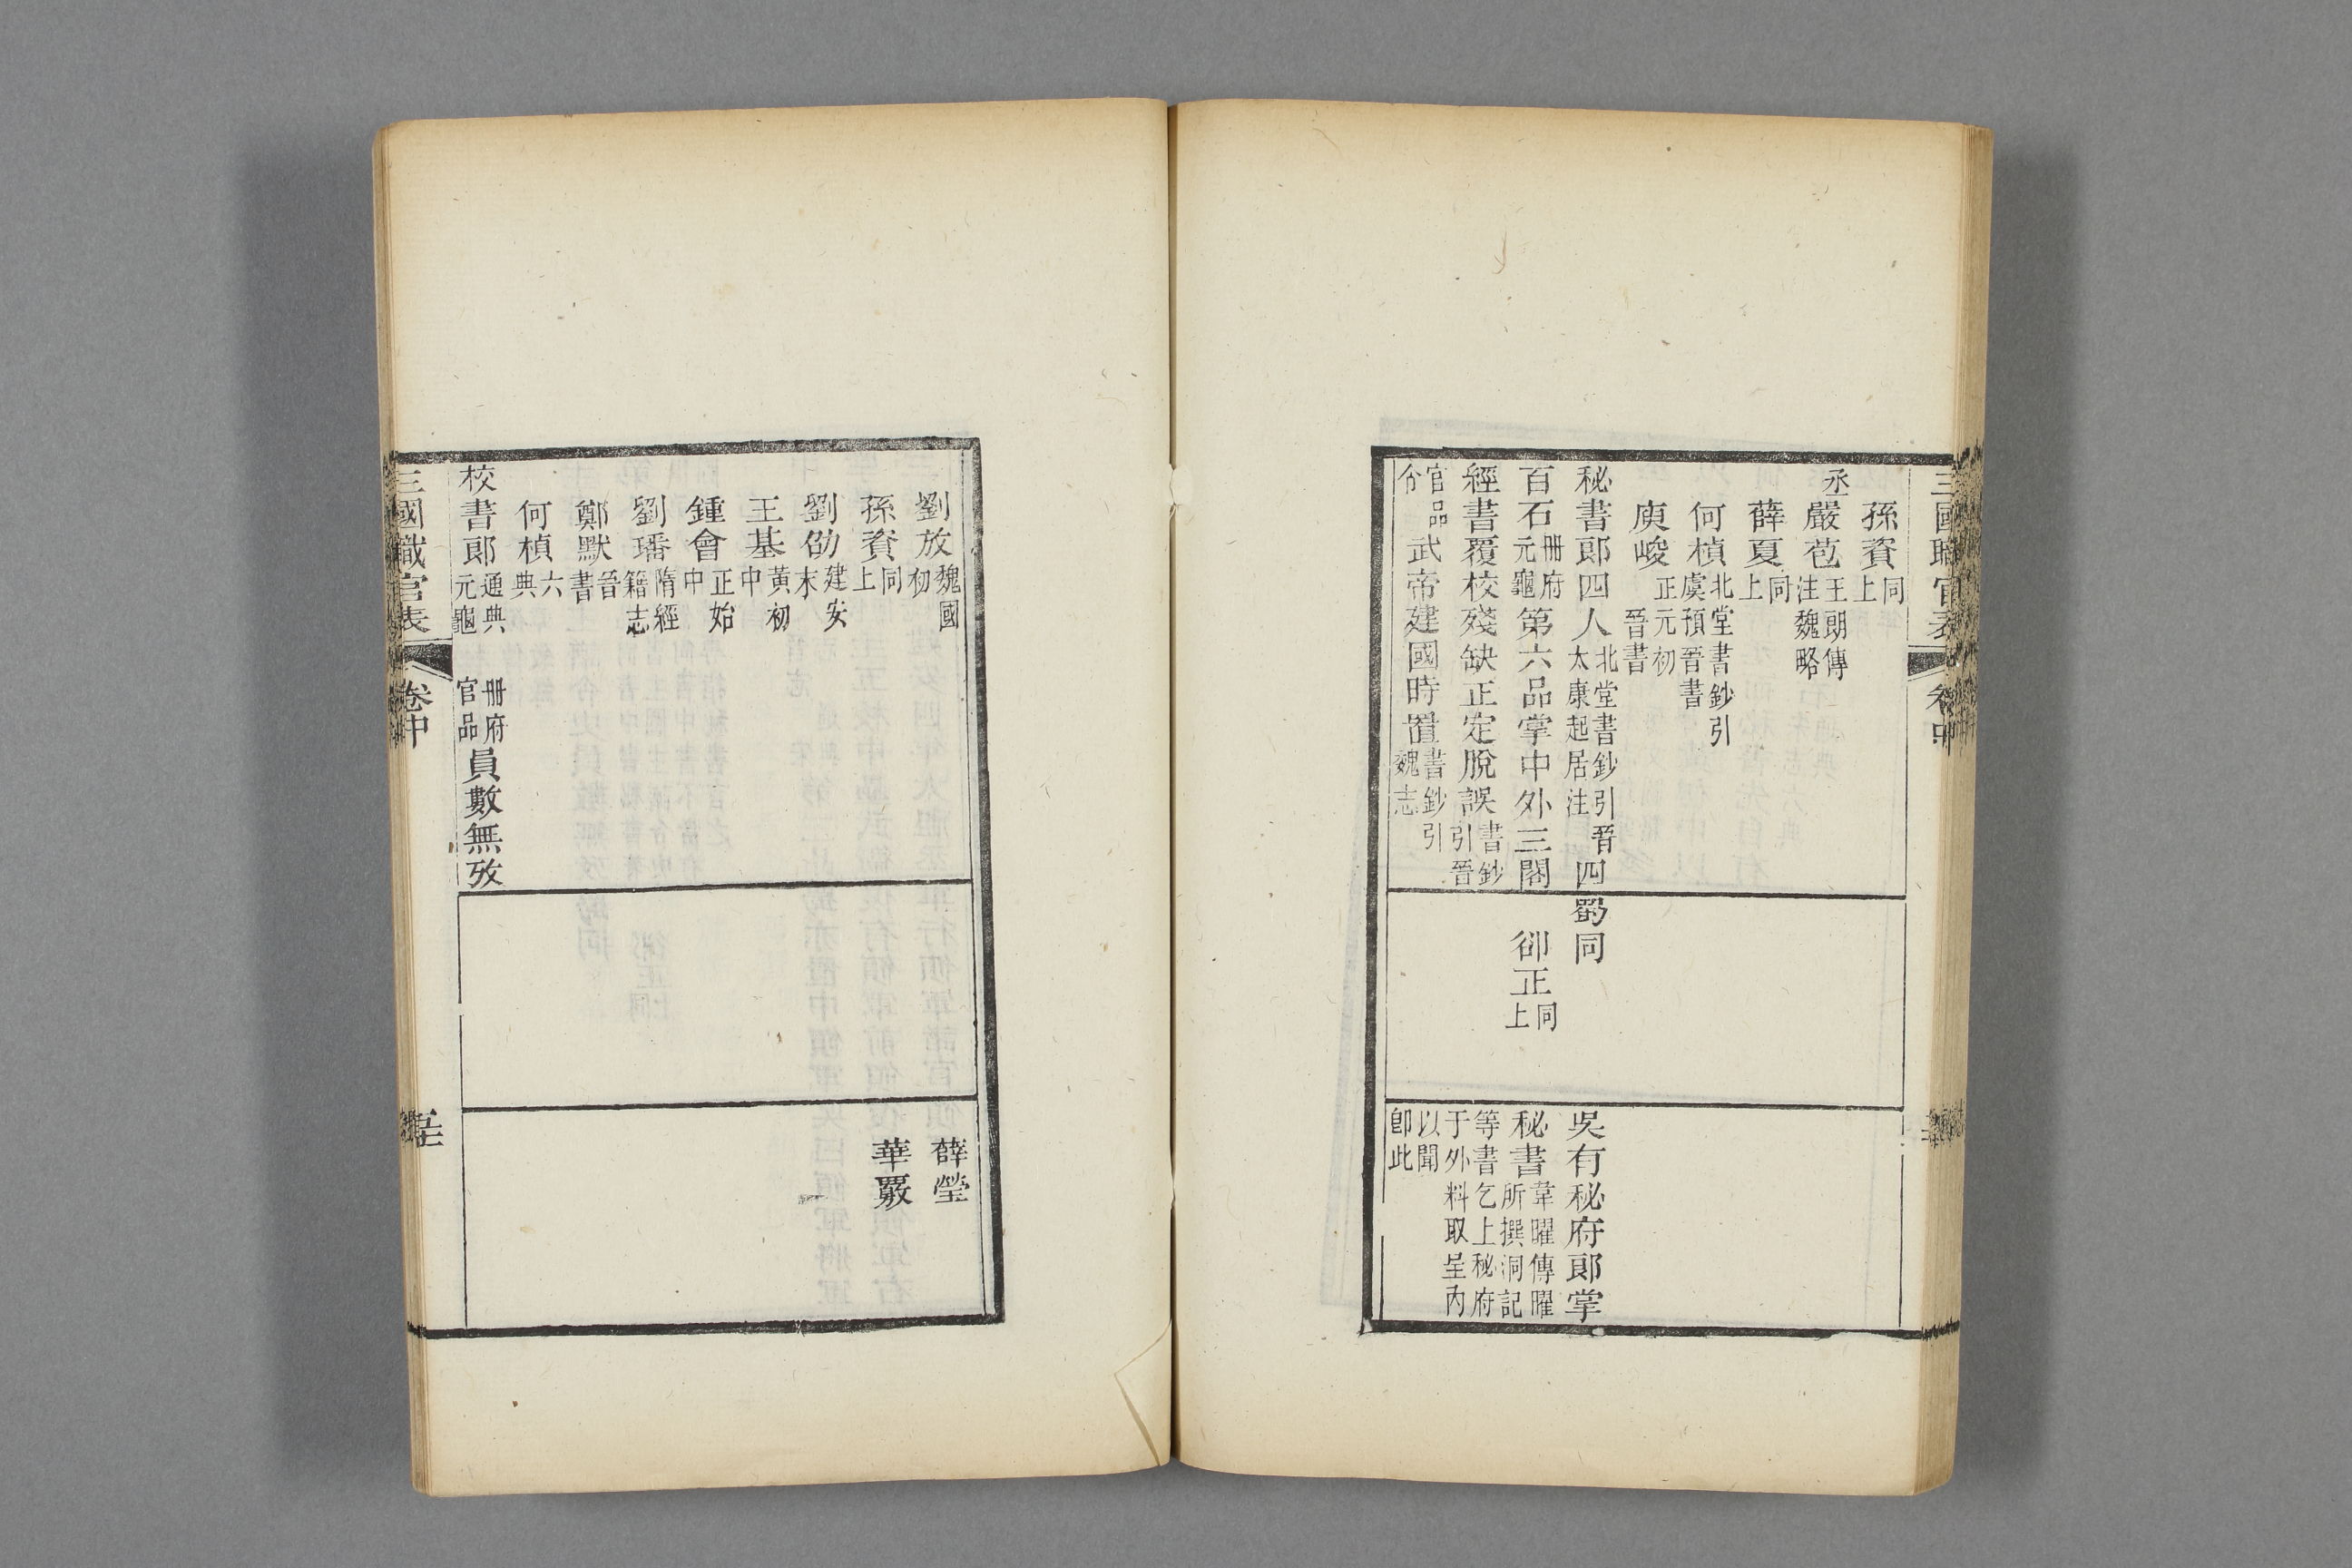 三國職官表
卷中
孫資同上
丞嚴苞王朗傳注魏略
薛夏同上
何楨北堂書鈔引虞預晉書
庾峻正元初晉書
秘書郎四人北堂書鈔引晉太康起居注四
百石冊府元龜第六品掌中外三閣
經書覆校殘缺正定脫誤書鈔引晉
官品令武帝建國時置書鈔引魏志
蜀同
郤正同上
吳有秘府郎掌
秘書韋曜傳曜所撰洞記
等書乞上秘府
于外料取呈內
以聞
卽此
劉放魏國初
孫資同上
劉劭建安末
王基黃初中
鍾會正始中
劉璠隋經籍志
鄭默晉書
何楨六典
校書郎通典元龜冊府官品員數無攷
薛瑩
華覈
三國職官表
卷中